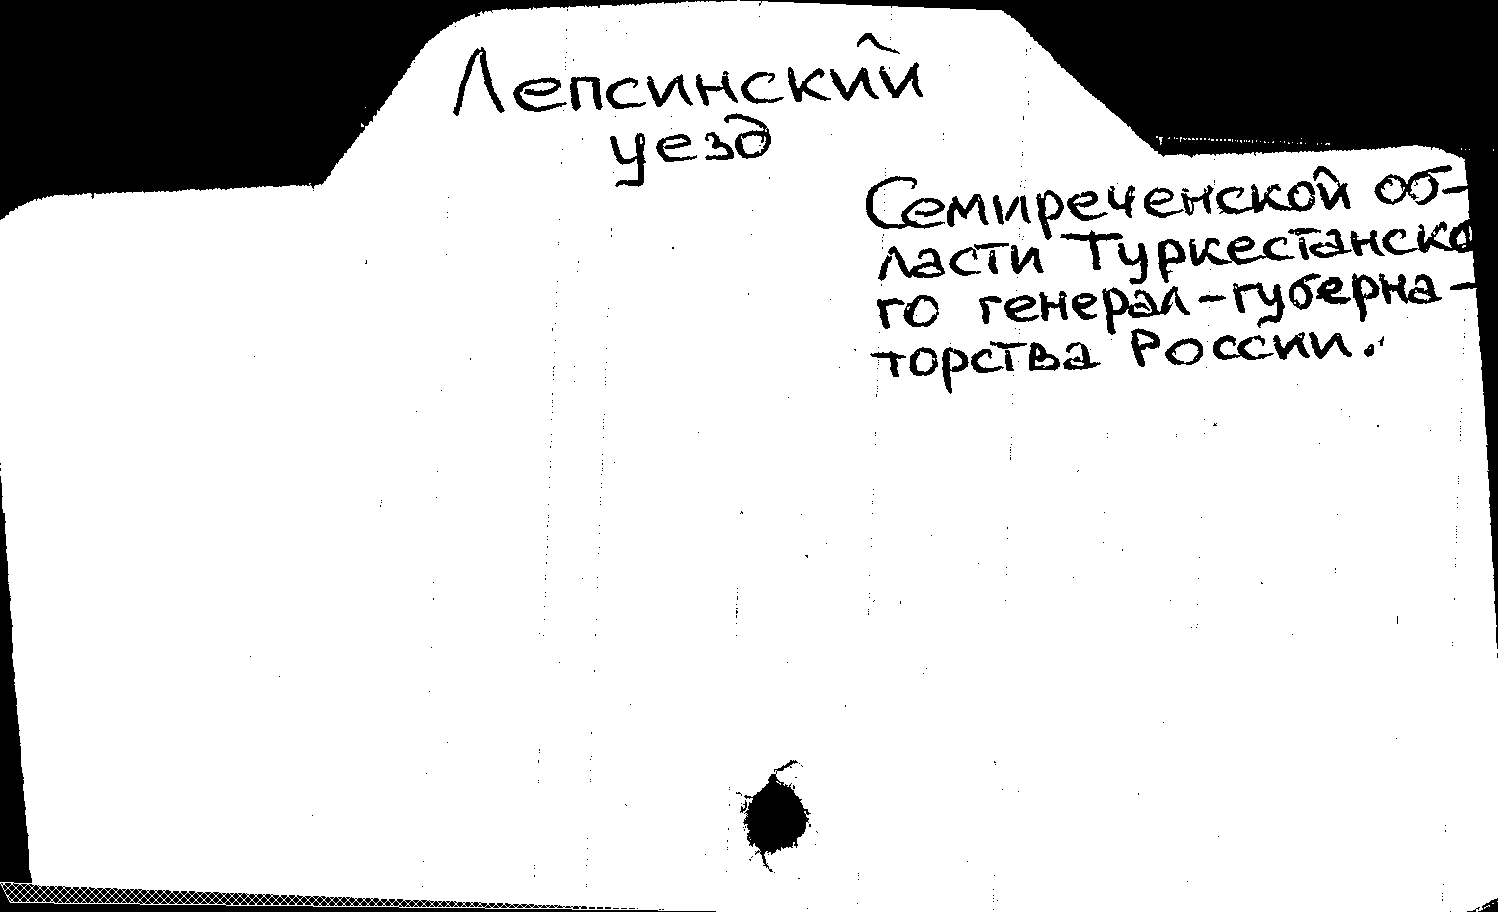 Лепсинский
уезд
Семиреченской об-
ласти Туркестанско
го генерал-губерна-
торства России.